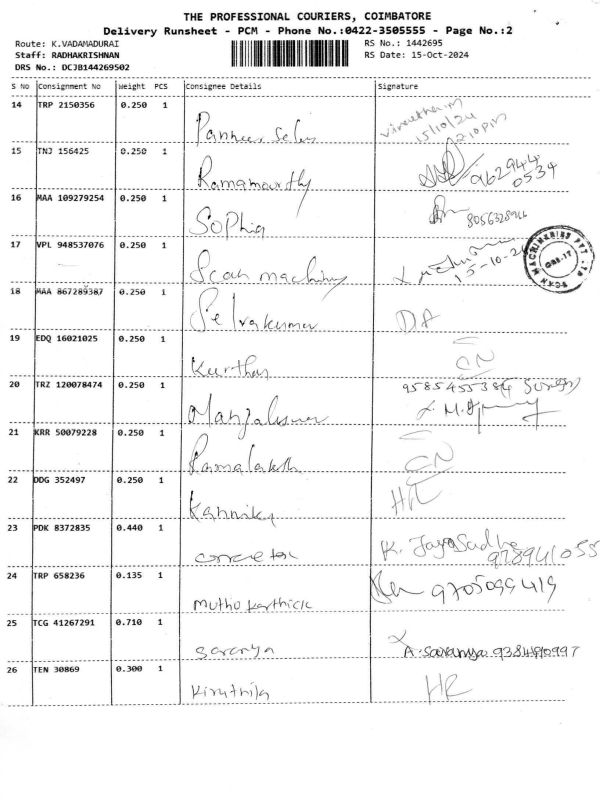 THE PROFESSIONAL COURIERS, COIMBATORE
Delivery Runsheet - PCM - Phone No.:0422-3505555 - Page No.:2
Route: K.VADAMADURAI RS No.: 1442695
Staff: RADHAKRISHNAN RS Date: 15-Oct-2024
DRS No.: DCJB144269502
S No Consignment No Weight PCS Consignee Details Signature
14 TRP 2150356 0.250 1
Panneer Selvam
15/10/24
2:10pm
15 TNJ 156425 0.250 1
Ramamoorthy 962944
0534
16 MAA 109279254 0.250 1
Sophia
17 VPL 948537076 0.250 1
Scan machinery 15-10-24
SCAN MACHINERIES PVT LTD
18 MAA 867289387 0.250 1
Selvakumar DA
19 EDQ 16021025 0.250 1
Keerthan CN
20 TRZ 120078474 0.250 1
21 KRR 50079228 0.250 1
Ramalaksh CN
22 DDG 352497 0.250 1
Kannika
23 PDK 8372835 0.440 1
K.
24 TRP 658236 0.135 1
Mutho Karthick 9705099419
25 TCG 41267291 0.710 1
Saranya A. Saranya 9384490997
26 TEN 30869 0.300 1
Kiruthika HR